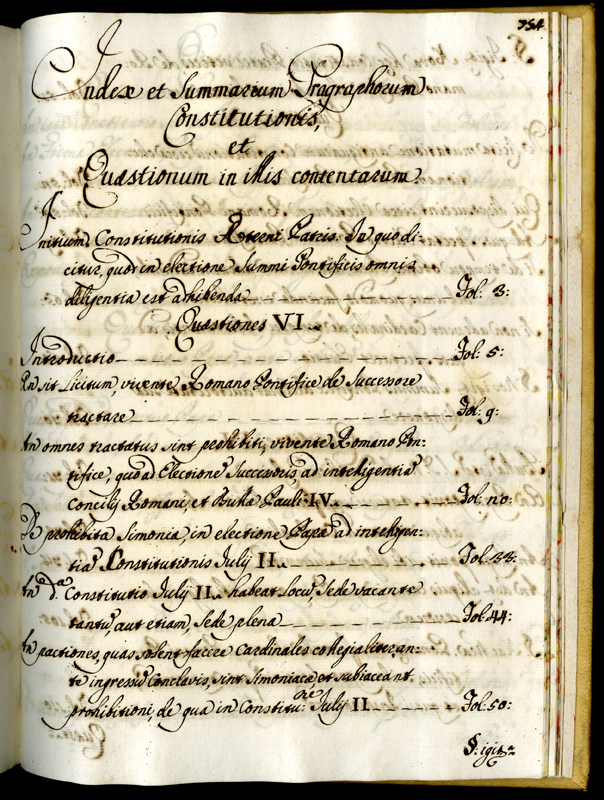 354
Index et Summarium Pragraphorum
Constitutionis,
et
Quæstionum in illis contentarum.
Initium Constitutionis Æterni Patris. In quo di-
citur, quod in electione Summi Pontificis omnis
diligentia est adhibenda Fol: 3:
Quæstiones VI.
Introductio Fol: 5:
An sit Licitum, vivente Romano Pontifice de Successore
tractare Fol: 9:
An omnes tractatus sint prohibiti, vivente Romano Pon:
tifice, quoad Electionē Successoris, ad intelligentiā
Concilij Romani, et Bullæ Pauli IV. Fol:
De prohibita Simonia, in electione Papæ ad intelligen:
tiā Constitutionis Julij II. Fol: 33:
An d.ª Constitutio Julij II. habeat locū, Sede vacante
tantū, aut etiam, Sede plena Fol: 44:
An pactiones, quas solent facere Cardinales collegialiter, an:
te ingressū Conclavis, sint Simoniacæ et subiaceant
prohibitioni, de qua in Constitu:ⁿᵉ Julij II. Fol: 50:
§: igit.ʳ